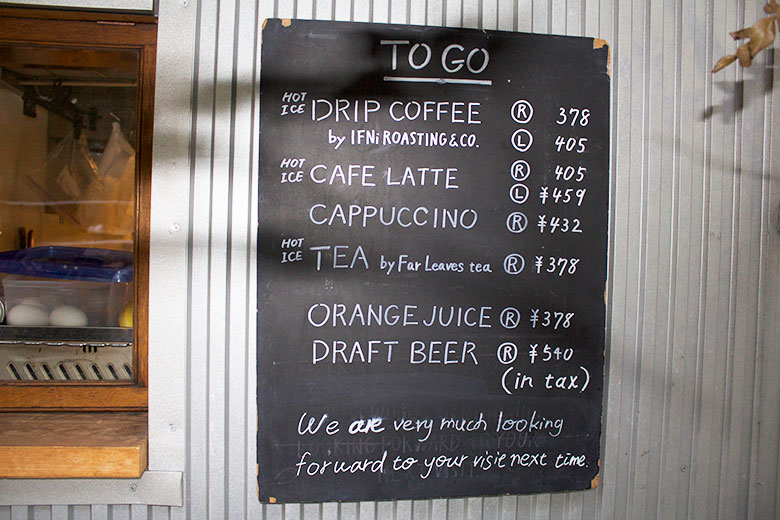 TO GO
HOT ICE DRIP COFFEE Ⓡ 378
by IFNi ROASTING & CO. Ⓛ 405
HOT ICE CAFE LATTE Ⓡ 405
Ⓛ ¥459
CAPPUCCINO Ⓡ ¥432
HOT ICE TEA by Far Leaves tea Ⓡ ¥378
ORANGE JUICE Ⓡ ¥378
DRAFT BEER Ⓡ ¥540
(in tax)
We are very much looking
forward to your visit next time.